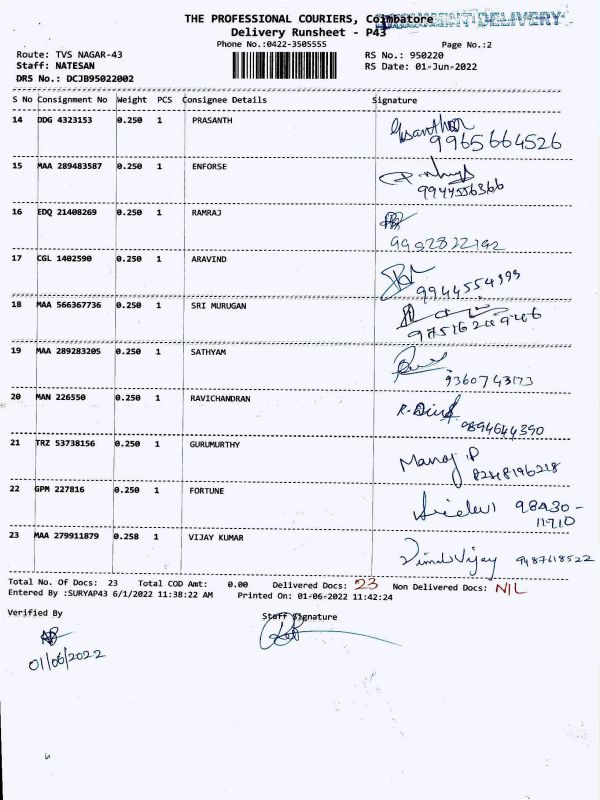 THE PROFESSIONAL COURIERS, Coimbatore
DELIVERY
Delivery Runsheet - P43
Phone No.:0422-3505555
Page No.:2
Route: TVS NAGAR-43
RS No.: 950220
Staff: NATESAN
RS Date: 01-Jun-2022
DRS No.: DCJB95022002
S No Consignment No Weight PCS Consignee Details Signature
14 DDG 4323153 0.250 1 PRASANTH
9965664526
15 MAA 289483587 0.250 1 ENFORSE
9944556366
16 EDQ 21408269 0.250 1 RAMRAJ
17 CGL 1402590 0.250 1 ARAVIND
18 MAA 566367736 0.250 1 SRI MURUGAN
19 MAA 289283205 0.250 1 SATHYAM
9360743173
20 MAN 226550 0.250 1 RAVICHANDRAN
9894644390
21 TRZ 53738156 0.250 1 GURUMURTHY
Manoj.P
8248196218
22 GPM 227816 0.250 1 FORTUNE
Sridevi 98430-
11710
23 MAA 279911879 0.258 1 VIJAY KUMAR
Vimal Vijay 9487618522
Total No. Of Docs: 23 Total COD Amt: 0.00 Delivered Docs: 23 Non Delivered Docs: NIL
Entered By :SURYAP43 6/1/2022 11:38:22 AM Printed On: 01-06-2022 11:42:24
Verified By Staff Signature
01/06/2022